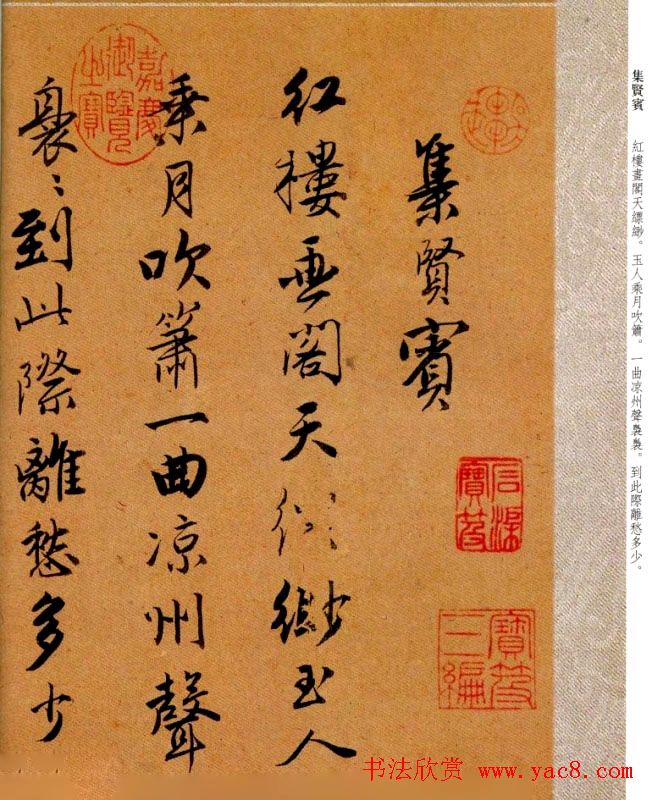 集賢賓
紅樓畫閣天縹緲玉人
乘月吹簫一曲凉州聲
裊〻到此際離愁多少
嘉慶御覽之寶
石渠寶笈
寶笈三編
集賢賓　紅樓畫閣天縹緲。玉人乘月吹簫。一曲凉州聲裊裊。到此際離愁多少。
书法欣赏 www.yac8.com